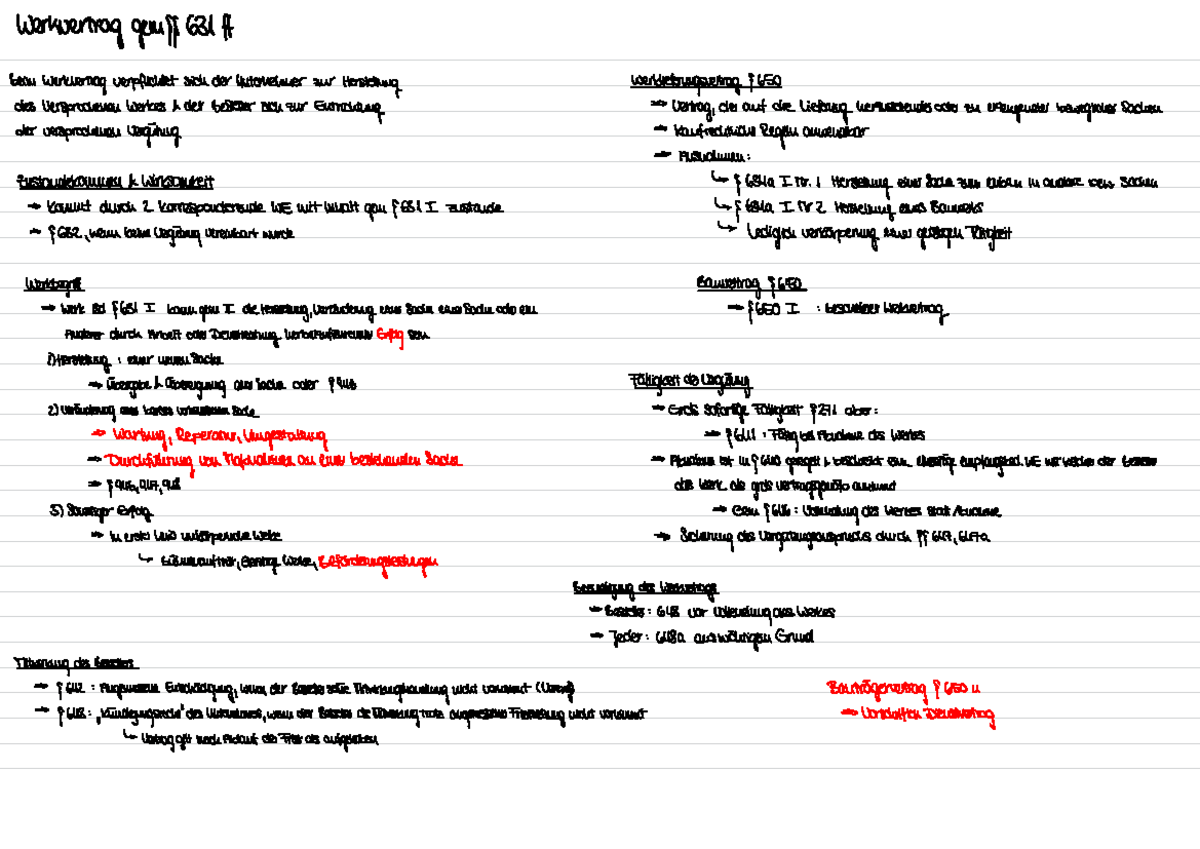 Werkvertrag gem §§ 631 ff
Beim Werkvertrag verpflichtet sich der Unternehmer zur Herstellung
des Versprochenen Werkes & der Besteller sich zur Entrichtung
der versprochenen Vergütung
Zustandekommen & Wirksamkeit
→ Kommt durch 2 korrespondierende WE mit Inhalt gem § 631 I zustande
→ § 632, wenn keine Vergütung vereinbart wurde
Werkbegriff
→ Werk iSd § 631 I kann gem II die Herstellung, Veränderung einer Sache oder ein
Anderer durch Arbeit oder Dienstleistung herbeizuführender Erfolg sein
1) Herstellung : einer neuen Sache
→ Übergabe & Übereignung der Sache oder §
2) Veränderung einer bereits vorhandenen Sache
→ Wartung, Reperatur, Umgestaltung
→ Durchführung von Maßnahmen an einer bestehenden Sache
→ § 946, 947, 948
3) Sonstiger Erfolg
→ In erster Linie unkörperliche Werke
↳ geistige Werke, Beförderungsleistungen
Mitwirkung des Bestellers
→ § 642 : Angemessene Entschädigung, wenn der Besteller seine Mitwirkungshandlung nicht vornimmt (Verzug)
→ § 643 : „Kündigungsrecht" des Unternehmers, wenn der Besteller die Mitwirkung trotz angemessener Fristsetzung nicht vornimmt
↳ Vertrag gilt nach Ablauf der Frist als aufgehoben
Werklieferungsvertrag § 650
→ Vertrag, der auf die Lieferung herzustellender oder zu erzeugender beweglicher Sachen
→ Kaufrechtliche Regeln anwendbar
→ Ausnahmen :
↳ § 651a I Nr. 1 Herstellung einer Sache zum
↳ § 651a I Nr 2 Herstellung eines Bauwerks
↳ Lediglich verkörperung einer geistigen Tätigkeit
Bauvertrag § 650
→ § 650 I : besonderer Werkvertrag
Fälligkeit der Vergütung
→ Grds sofortige Fälligkeit § 271 aber :
→ § 641 : Fällig bei Abnahme des Werkes
→ Abnahme ist in § 640 geregelt & beschreibt eine einseitige empfangsbed. WE mit welcher der Besteller
das Werk als grds vertragsgemäß anerkennt
→ Gem § 646 : Vollendung des Werkes statt Abnahme
→ Sicherung des Vergütungsanspruchs durch §§ 647, 647a
Beendigung des Werkvertrags
→ Besteller : 648 vor Vollendung des Werkes
→ Jeder : 648a aus wichtigem Grund
Bauträgervertrag § 650 u